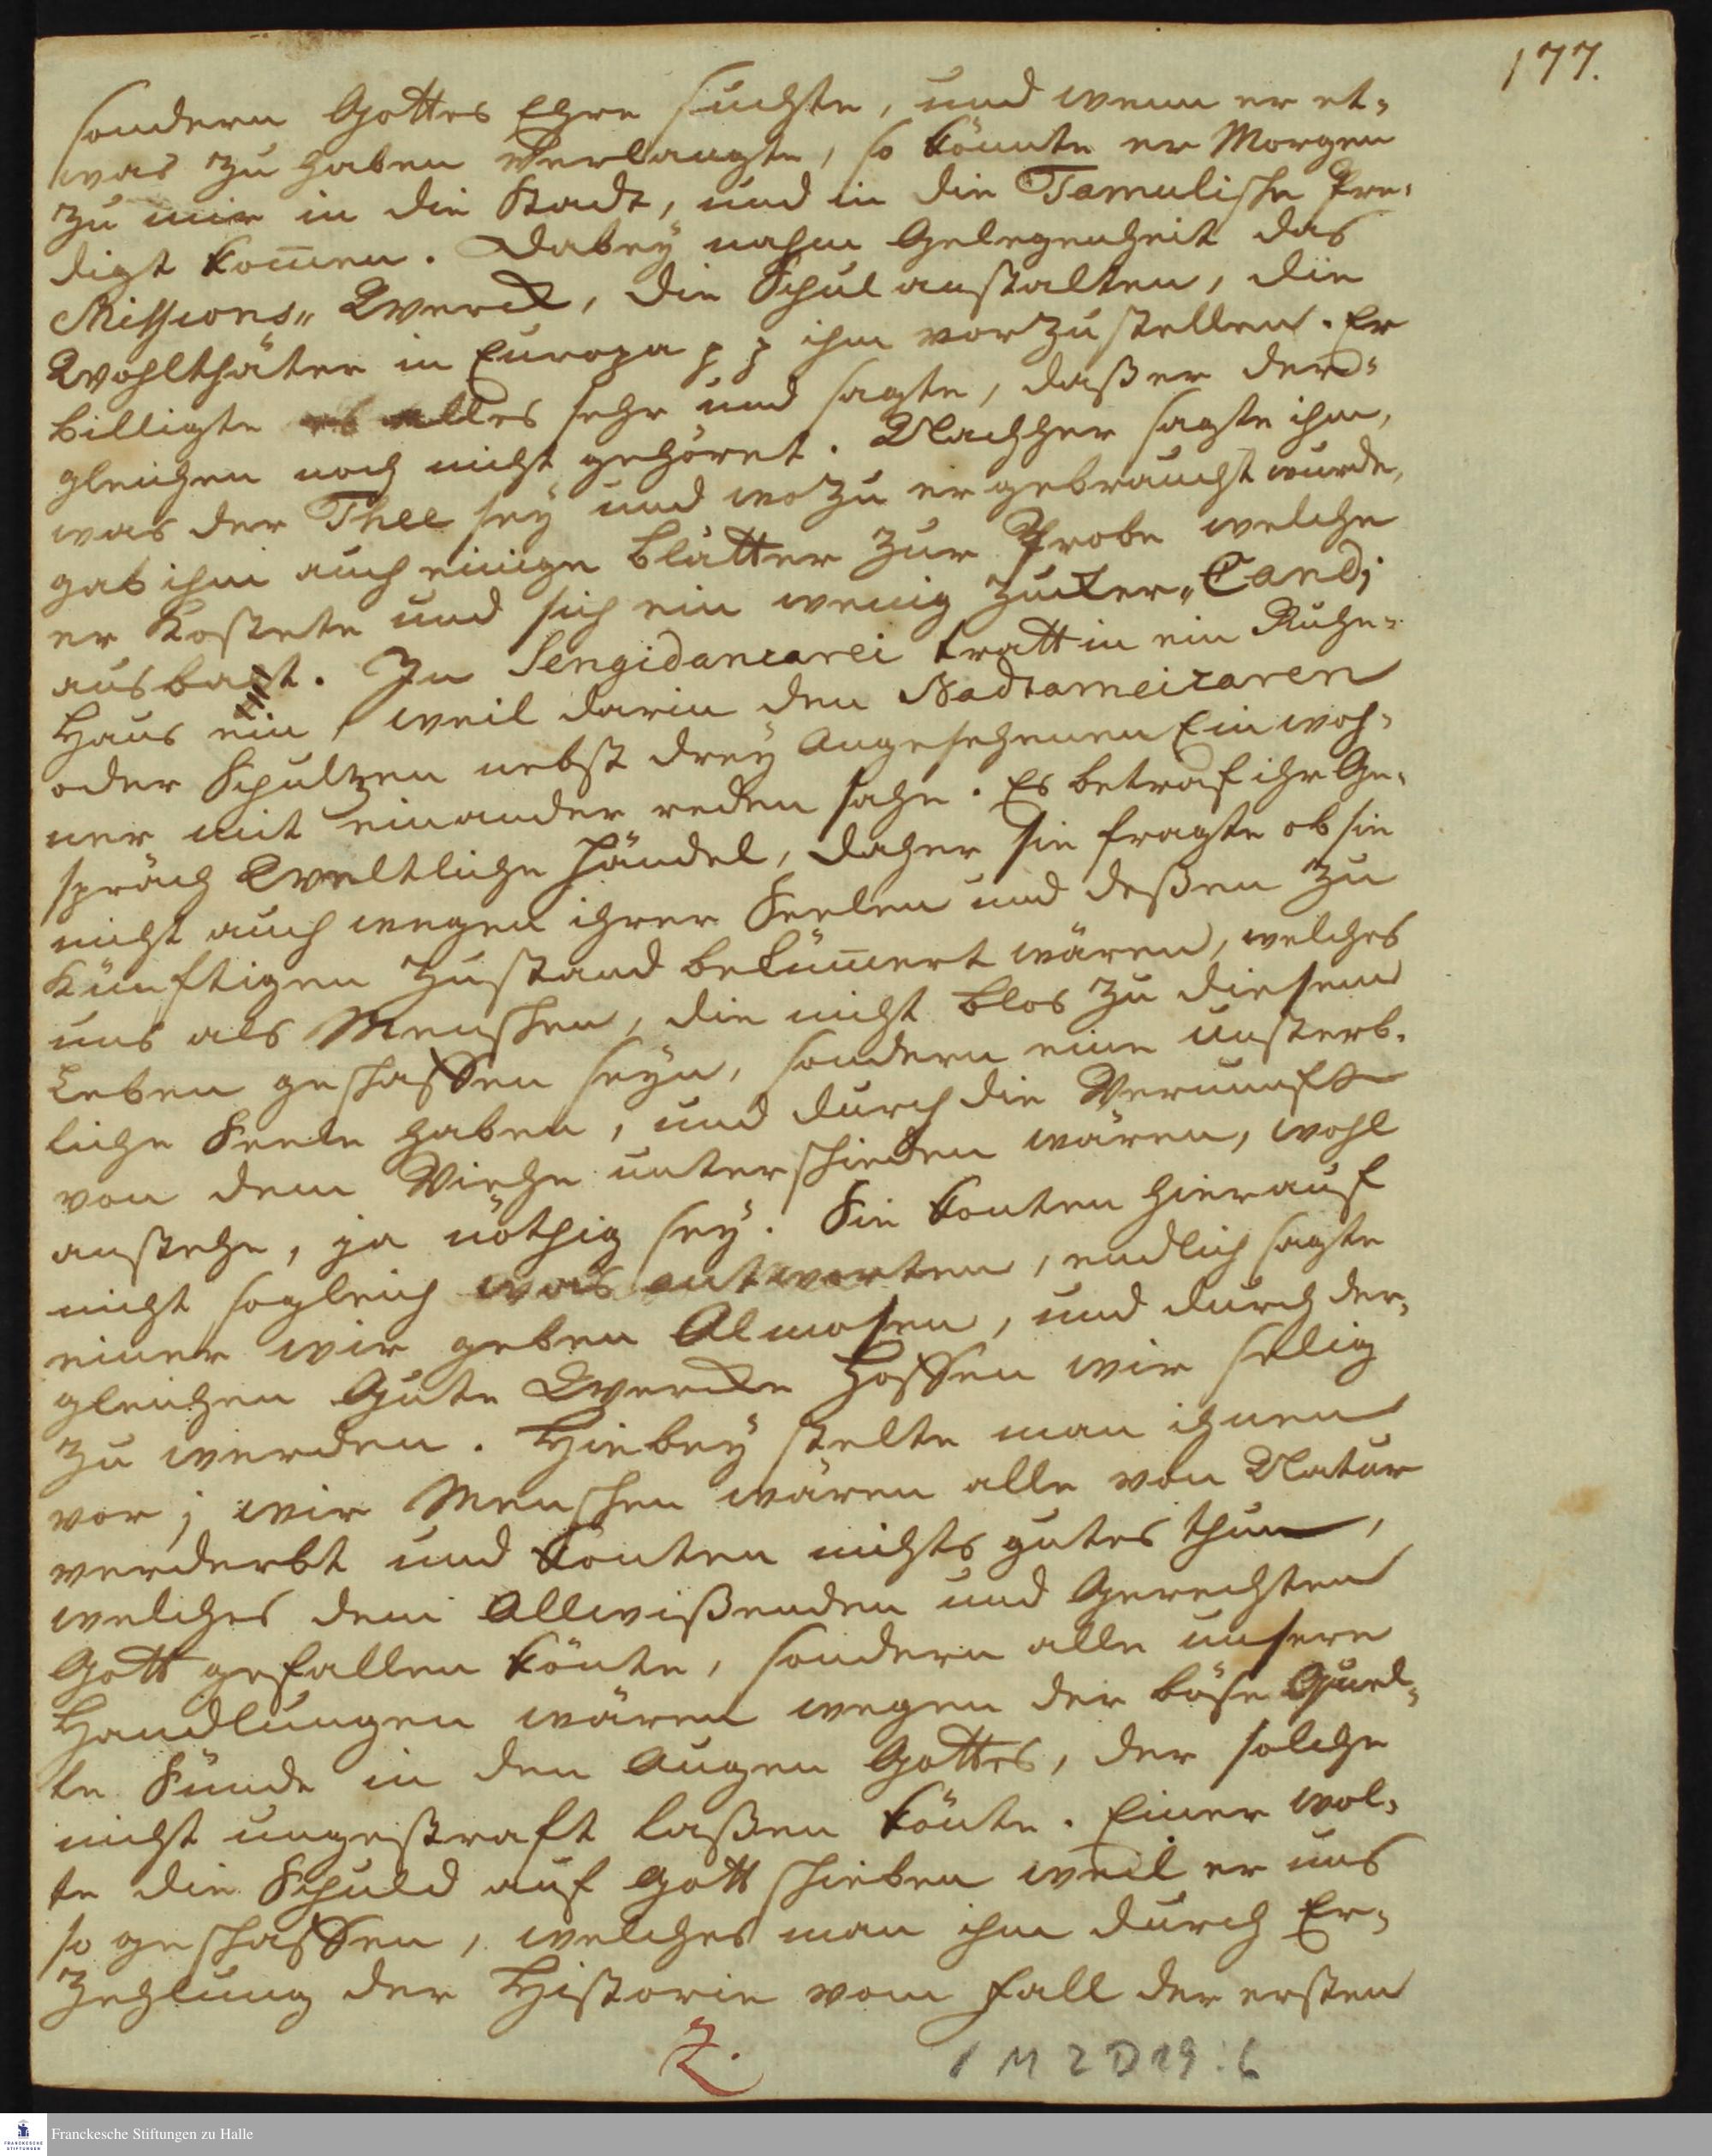 177.
sondern Gottes Ehre suchte, und wenn er et-
was zu haben verlangte, so könnte er Morgen
zu mir in die Stadt, und in die Tamulische Pre-
digt kom̅en. Dabey nahm Gelegenheit das
Missions„ Werck, die Schulanstalten, die
Wohlthäter in Europa p p ihm vorzustellen. Er
billigte alles sehr und sagte, daß er der-
gleichen noch nicht gehöret. Nachher sagte ihm,
was der Thee sey und wozu er gebraucht wurde,
gab ihm auch einige Blätter zur Probe welche
er kostete und sich ein wenig Zucker„Candj
ausbatt. In Sengidancarei tratt in ein Ruhe-
Haus ein, weil darin den Nadtameicaren
oder Schultzen nebst drey Angesehenen Einwoh-
ner mit einander reden sahe. Es betraf ihr Ge-
spräch Weltliche Händel, daher sie fragte ob sie
nicht auch wegen ihrer Seelen und deßen zu
künftigen Zustand beküm̅ert wären, welches
uns als Menschen, die nicht blos zu diesem
Leben geschaffen seyn, sondern eine unsterb-
liche Seele haben, und durch die Vernunft
von dem Viehe unterschieden wären, wohl
anstehe, ja nöthig sey. Sie konten hierauf
nicht sogleich was antworten, endlich sagte
einer wir geben Almosen, und durch der-
gleichen Gute Wercke hoffen wir selig
zu werden. Hiebey stelte man ihnen
vor; wir Menschen wären alle von Natur
verderbt und könten nichts gutes thun,
welches dem Allwißenden und Gerechten
Gott gefallen könte, sondern alle unsere
Handlungen wären wegen der böse Quel-
le Sünde in den Augen Gottes, der solche
nicht ungestraft laßen könte. Einer wol-
te die Schuld auf Gott schieben weil er uns
so geschaffen, welches man ihm durch Er-
zehlung der Historie vom Fall der ersten
Z.
1 M 2 D 19 : 6
Franckesche Stiftungen zu Halle